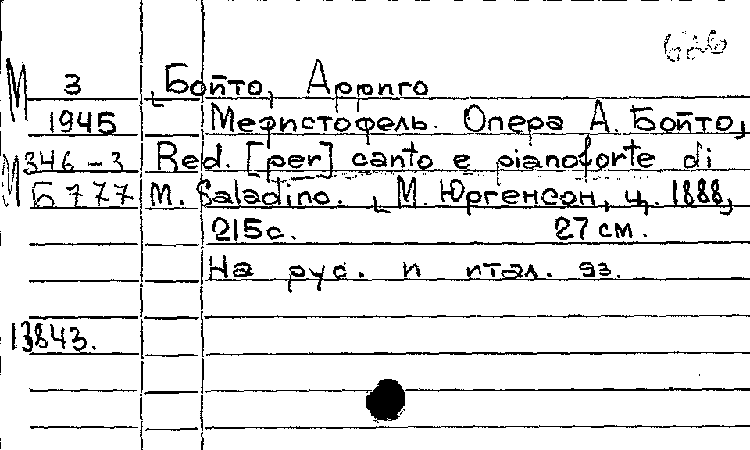 626
М 3 Бойто, Арриго
1945 Мефистофель. Опера А. Бойто,
М 346-3 Red. [per] canto e pianoforte di
Б 777 M. Saladino. М. Юргенсон, ц. 1888,
215 с. 27 см.
На рус. и итал. яз.
13843.